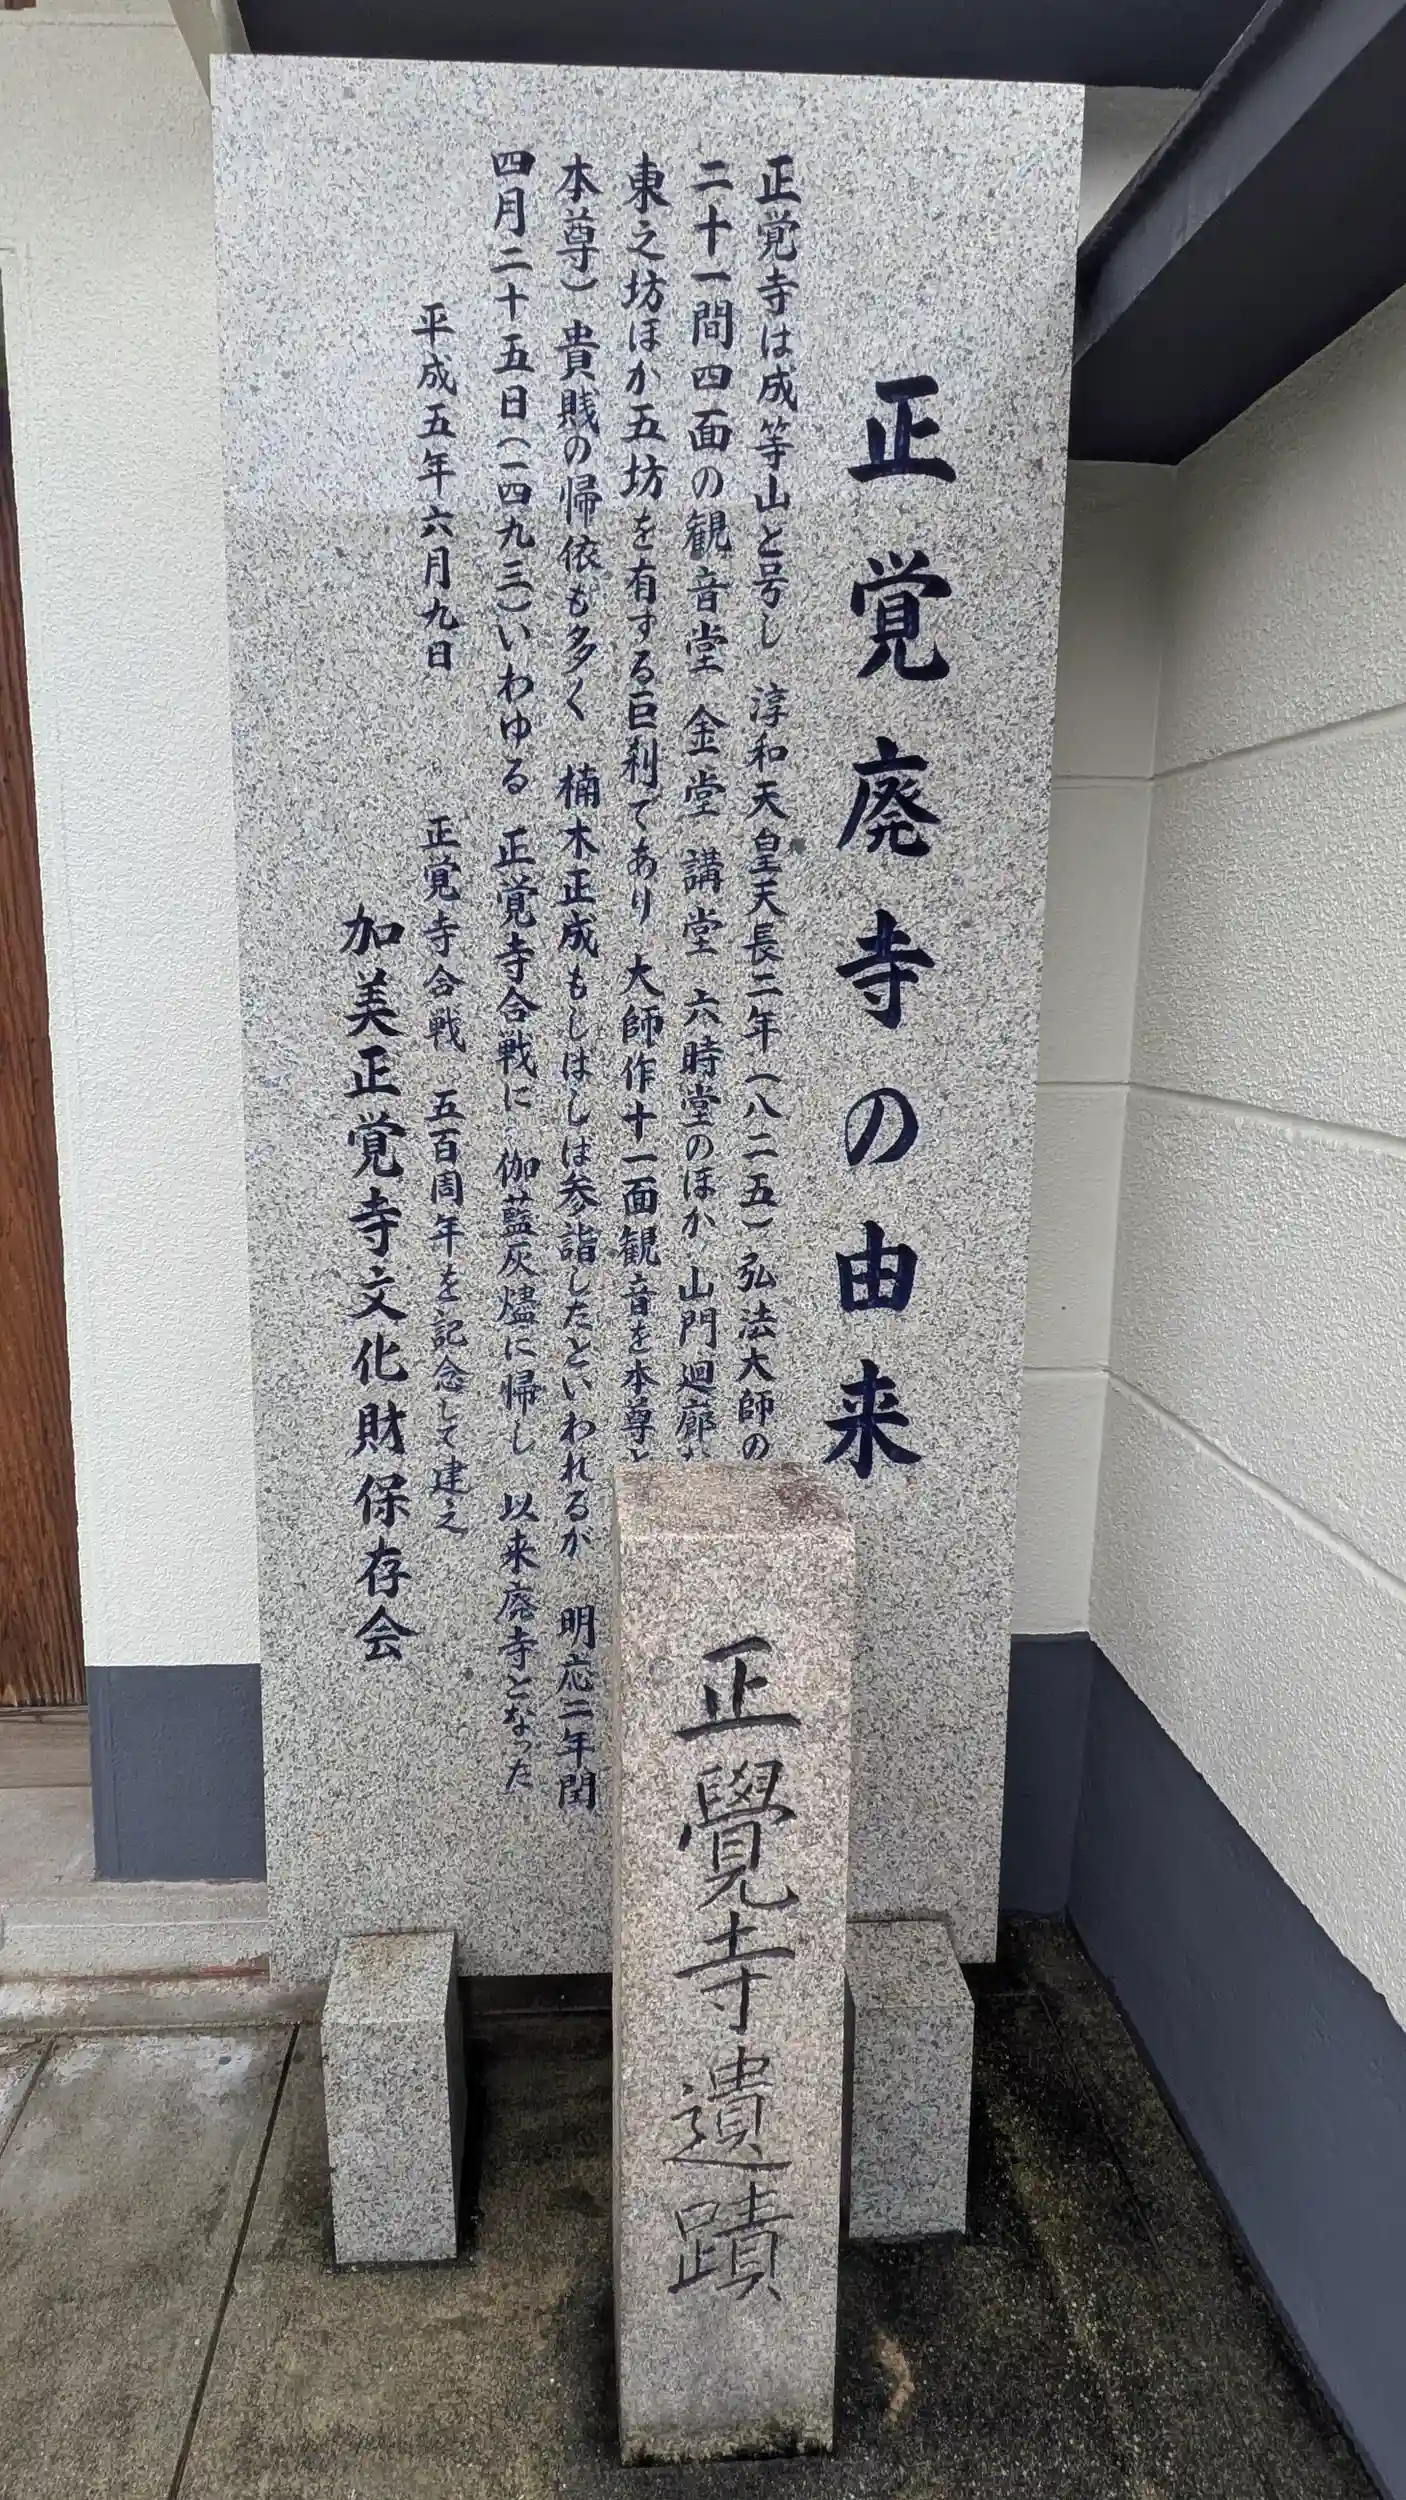 正覚廃寺の由来
正覚寺は成等山と号し 淳和天皇天長二年(八二五)弘法大師の
二十一間四面の観音堂 金堂 講堂 六時堂のほか 山門廻廊
東之坊ほか五坊を有する巨刹であり 大師作十一面観音を本尊と
本尊)貴賎の帰依も多く 楠木正成もしはしは参詣したといわれるが 明応二年閏
四月二十五日(一四九三)いわゆる 正覚寺合戦に 伽藍灰燼に帰し 以来廃寺となった
平成五年六月九日 正覚寺合戦 五百周年を記念して建之
加美正覚寺文化財保存会
正覺寺遺蹟